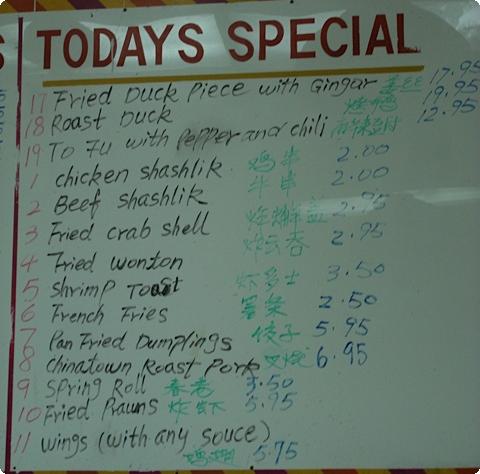 TODAYS SPECIAL
17 Fried Duck Piece with Gingar 17.95
18 Roast Duck 烧鸭 19.95
19 To Fu with Pepper and chili 12.95
1 chicken shashlik 鸡串 2.00
2 Beef shashlik 牛串 2.00
3 Fried crab shell 2.95
4 Fried wonton 炸云吞 2.95
5 Shrimp Toast 虾多士 3.50
6 French Fries 薯条 2.50
7 Pan Fried Dumplings 饺子 5.95
8 chinatown Roast Pork 叉烧 6.95
9 Spring Roll 春卷 3.50
10 Fried Prawns 炸虾 5.95
11 wings (with any souce) 鸡翅 5.75